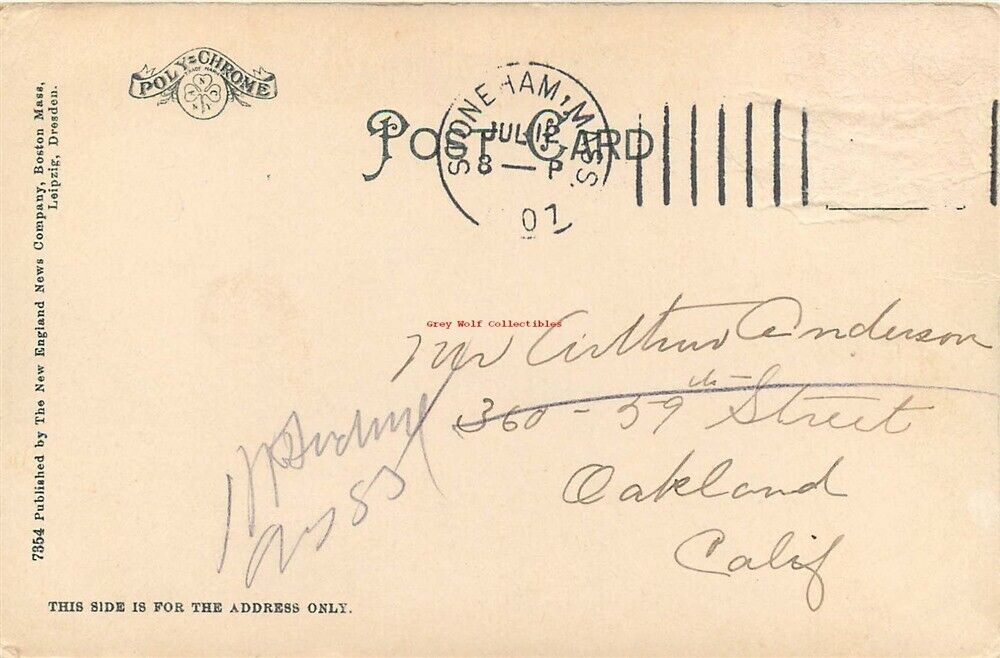 POLY=CHROME
TRADE MARK
POST CARD
STONEHAM, MASS.
JUL 12
8 — P
07
7354 Published by The New England News Company, Boston Mass,
Leipzig, Dresden.
Grey Wolf Collectibles
Mr Arthur Anderson
360 - 59th Street
Oakland
Calif
THIS SIDE IS FOR THE ADDRESS ONLY.